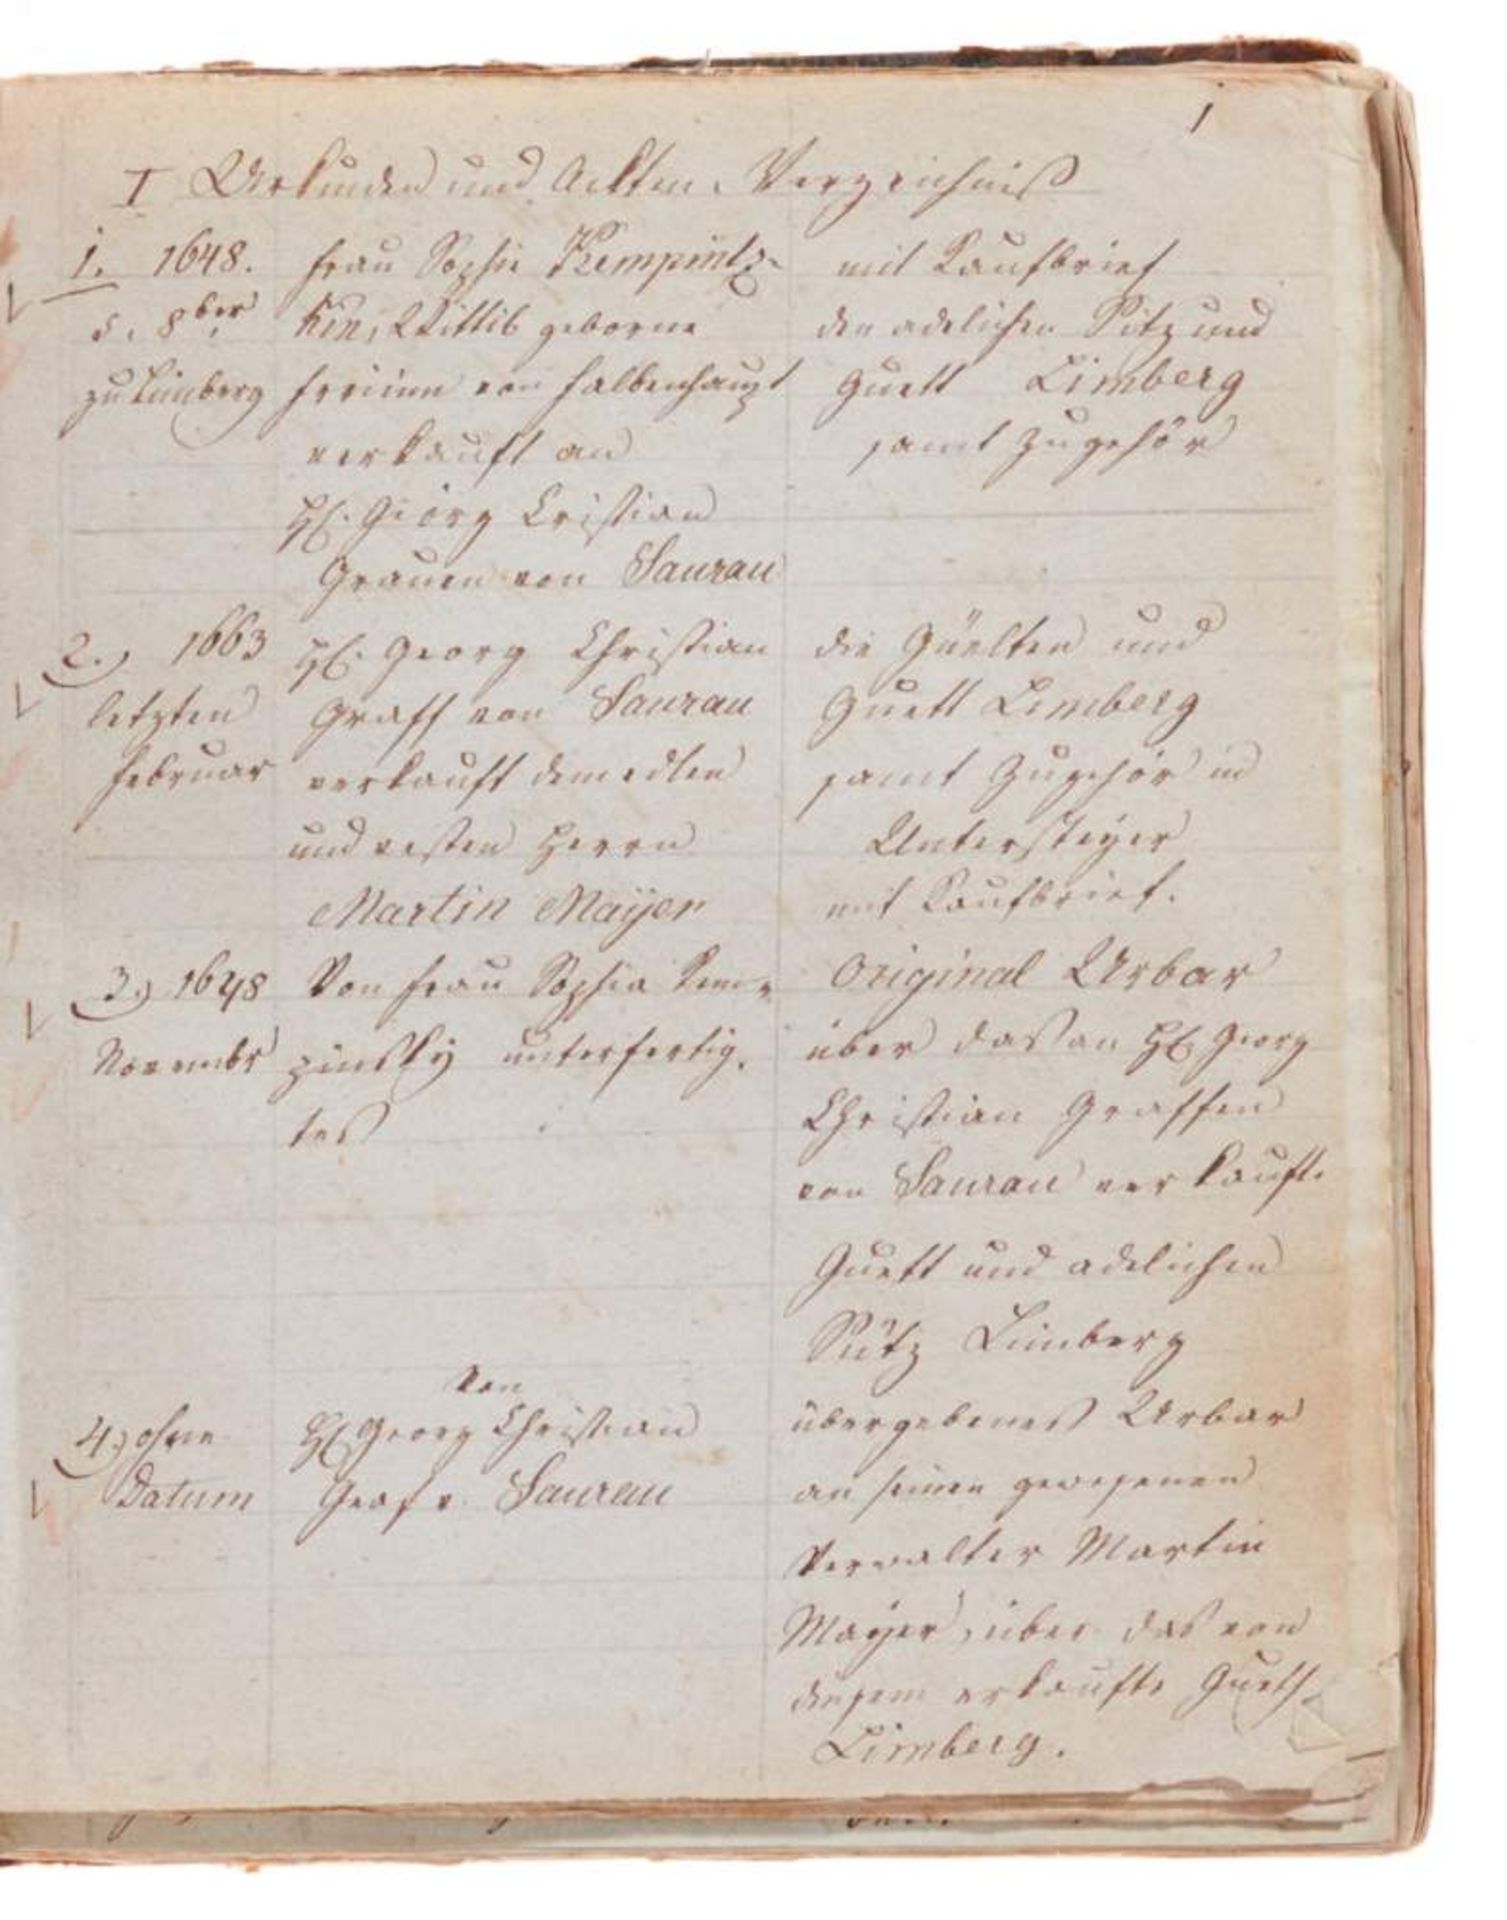 1
I Urkunden und Ackten-Verzeichniß
1. 1648.
d. 8ber
zu Limberg
Frau Sophie Kempintz-
kin, Wittib geborne
Freiinn von Falbenhaupt
verkauft an
H. Geörg Cristian
Grauen von Saurau
mit Kaufbrief
den adelichen Sitz und
Guett Limberg
samt Zugehör
2.) 1663
letzten
Februar
H. Georg Christian
Graff von Saurau
verkauft dem edlen
und vesten Herrn
Martin Mayer
die Güelten und
Guett Limberg
samt Zugehör in
Untersteyer
mit Kaufbrief.
3.) 1648
Novembr
Von Frau Sophia Kem-
pinsky unterfertig-
tes
Original Urbar
über das an H. Georg
Christian Graffen
von Saurau verkaufte
Guett und adelichen
Sütz Limberg
4.) ohne
Datum
Von
H. Georg Christian
Graf v. Saurau
übergebenes Urbar
an seinen gewesenen
Verwalter Martin
Mayer, über das von
diesem erkaufte Gueth
Limberg.